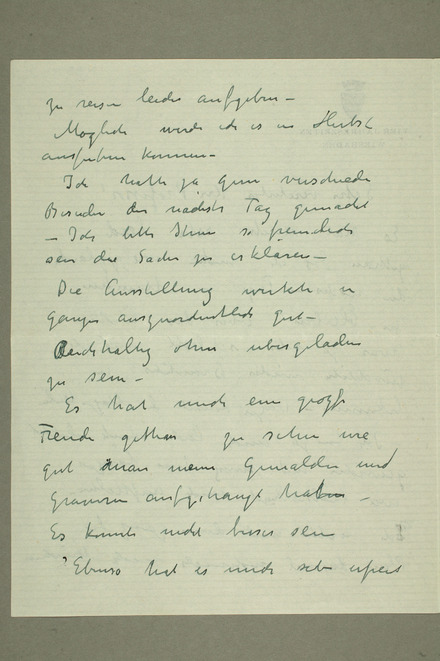 zu reisen leider aufgeben –
Möglich werde ich es im Herbst
ausführen können –
Ich hatte ja gern verschiede
Besuche den nächste Tag gemacht
– Ich bitte Ihnen so freundlich
sein die Sache zu erklären –
Die Ausstellung wirkte im
ganzen ausgeordentlich gut –
Reichhaltig ohne übergeladen
zu sein –
Es hat mich eine große
Freude gethan zu sehen wie
gut man meine Gemälden und
gravuren aufgehängt haben –
Es konnte nicht besser sein
Ebenso hat es mich sehr erfreut